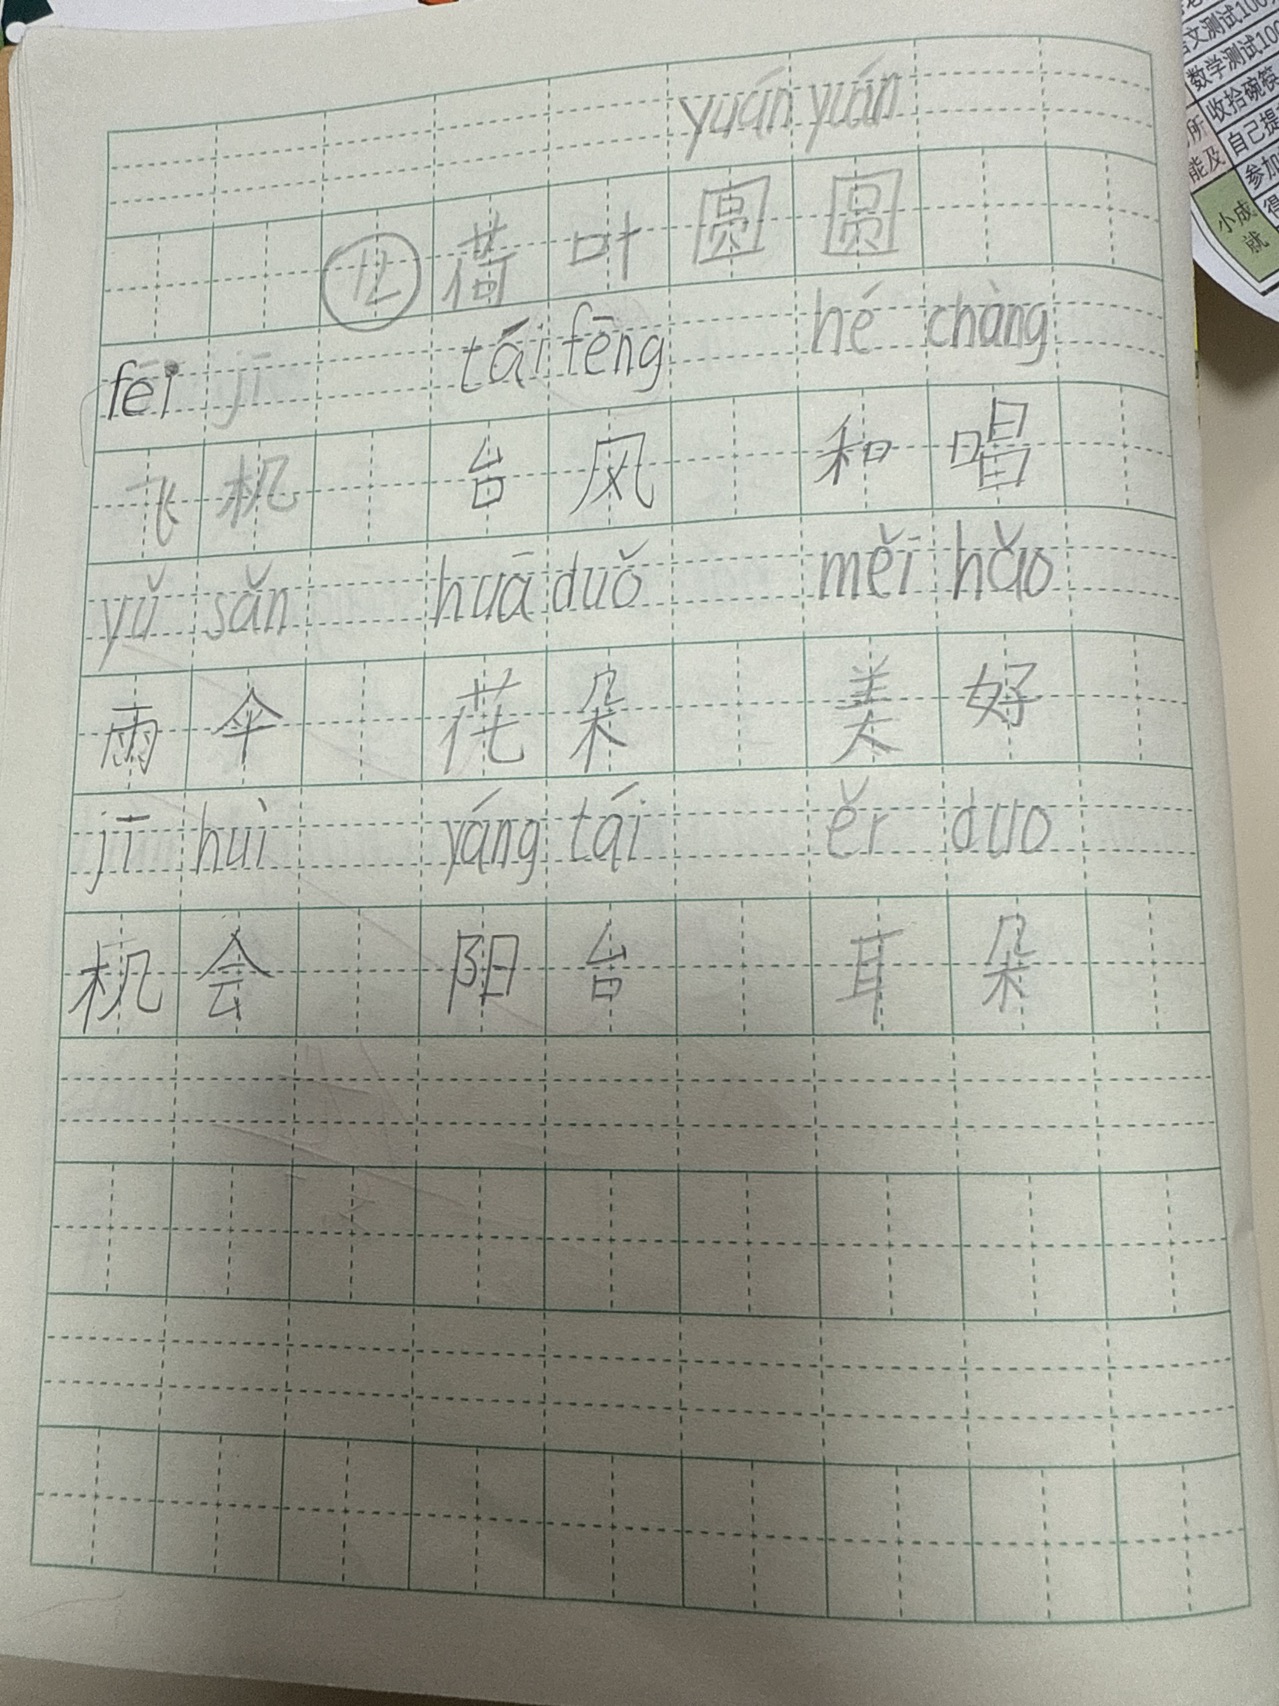 yuán yuán
12 荷叶圆圆
fēi jī tái fēng hé chàng
飞机 台风 和唱
yǔ sǎn huā duǒ měi hǎo
雨伞 花朵 美好
jī huì yáng tái ěr duo
机会 阳台 耳朵
语文测试100
数学测试100
收拾碗筷
自己提
参加
得
所
能及
小成
就